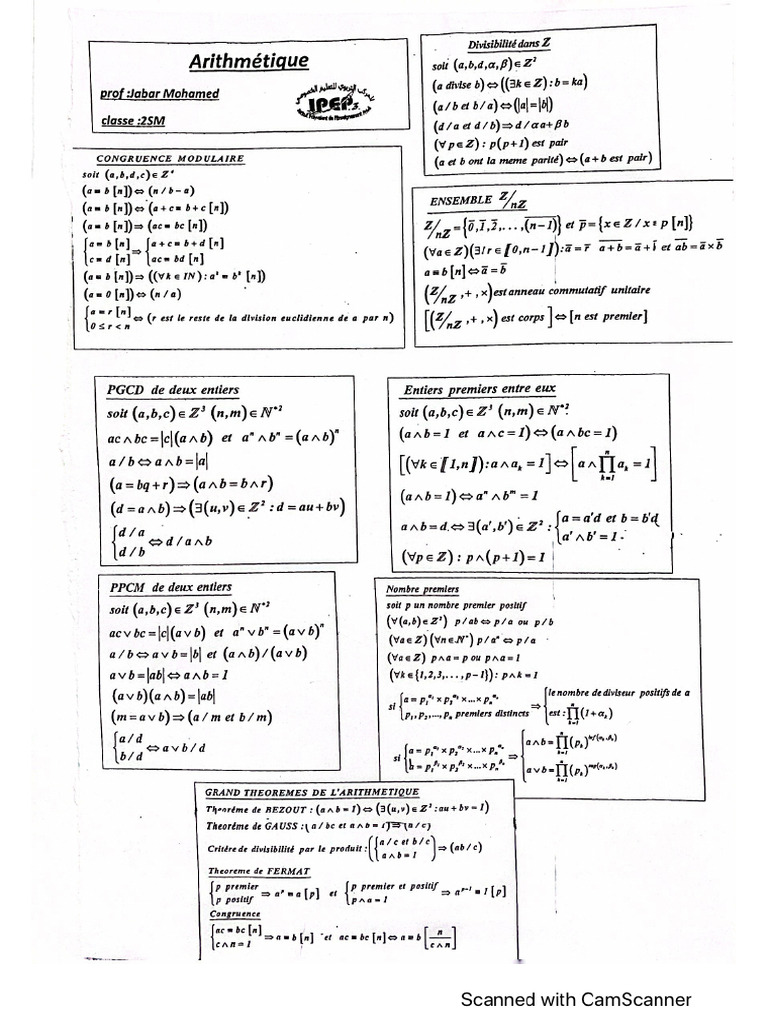 Arithmétique
prof :Jabar Mohamed
classe :2SM
IPEP
Divisibilité dans Z
soit (a,b,d,α,β)∈Z²
(a divise b)⇔((∃k∈Z):b=ka)
(a/b et b/a)⇔(|a|=|b|)
(d/a et d/b)⇒d/αa+βb
(∀p∈Z): p(p+1) est pair
(a et b ont la meme parité)⇔(a+b est pair)
CONGRUENCE MODULAIRE
soit (a,b,d,c)∈Z⁴
(a≡b [n])⇔(n/b-a)
(a≡b [n])⇔(a+c≡b+c [n])
(a≡b [n])⇒(ac≡bc [n])
{a≡b [n] ⇒ {a+c≡b+d [n]
{c≡d [n] {ac≡bd [n]
(a≡b [n])⇒((∀k∈IN):aᵏ≡bᵏ [n])
(a≡0 [n])⇔(n/a)
{a≡r [n]
{0≤r<n ⇔(r est le reste de la division euclidienne de a par n)
ENSEMBLE Z/nZ
Z/nZ={0̄,1̄,2̄,...,(n-1)} et p̄={x∈Z/x≡p [n]}
(∀a∈Z)(∃!r∈[0,n-1]):ā=r̄
a≡b[n]⇔ā=b̄
(Z/nZ,+,×) est anneau commutatif unitaire
[(Z/nZ,+,×) est corps]⇔[n est premier]
PGCD de deux entiers
soit (a,b,c)∈Z³ (n,m)∈N*²
ac∧bc=|c|(a∧b) et aⁿ∧bⁿ=(a∧b)ⁿ
a/b⇔a∧b=|a|
(a=bq+r)⇒(a∧b=b∧r)
(d=a∧b)⇒(∃(u,v)∈Z²:d=au+bv)
{d/a
{d/b ⇔d/a∧b
Entiers premiers entre eux
soit (a,b,c)∈Z³ (n,m)∈N*²
(a∧b=1 et a∧c=1)⇔(a∧bc=1)
[(∀k∈[1,n]):a∧aₖ=1]⇔[a∧∏ₖ₌₁ⁿ aₖ=1]
(a∧b=1)⇔aⁿ∧bᵐ=1
a∧b=d⇔∃(a',b')∈Z²:{a=a'd et b=b'd
{a'∧b'=1
(∀p∈Z): p∧(p+1)=1
PPCM de deux entiers
soit (a,b,c)∈Z³ (n,m)∈N*²
ac∨bc=|c|(a∨b) et aⁿ∨bⁿ=(a∨b)ⁿ
a/b⇔a∨b=|b| et (a∧b)/(a∨b)
a∨b=|ab|⇔a∧b=1
(a∨b)(a∧b)=|ab|
(m=a∨b)⇒(a/m et b/m)
{a/d
{b/d ⇔a∨b/d
Nombre premiers
soit p un nombre premier positif
(∀(a,b)∈Z²) p/ab⇔p/a ou p/b
(∀a∈Z)(∀n∈N*) p/aⁿ⇔p/a
(∀a∈Z) p∧a=p ou p∧a=1
(∀k∈{1,2,3,...,p-1}): p∧k=1
si {a=p₁^α₁×p₂^α₂×...×pₙ^αₙ ⇒ {le nombre de diviseur positifs de a
{p₁,p₂,...,pₙ premiers distincts {est:∏ₖ₌₁ⁿ(1+αₖ)
si {a=p₁^α₁×p₂^α₂×...×pₙ^αₙ ⇒ {a∧b=∏ₖ₌₁ⁿ(pₖ)^inf(αₖ,βₖ)
{b=p₁^β₁×p₂^β₂×...×pₙ^βₙ {a∨b=∏ₖ₌₁ⁿ(pₖ)^sup(αₖ,βₖ)
GRAND THEOREMES DE L'ARITHMETIQUE
Théorème de BEZOUT : (a∧b=1)⇔(∃(u,v)∈Z²:au+bv=1)
Théorème de GAUSS :(a/bc et a∧b=1)⇒(a/c)
Critère de divisibilité par le produit :({a/c et b/c
{a∧b=1)⇒(ab/c)
Theoreme de FERMAT
{p premier ⇒aᵖ≡a [p] et {p premier et positif ⇒aᵖ⁻¹≡1 [p]
{p positif {p∧a=1
Congruence
{ac≡bc [n] ⇒a≡b [n] et ac≡bc [n]⇔a≡b [n/c∧n]
{c∧n=1
Scanned with CamScanner